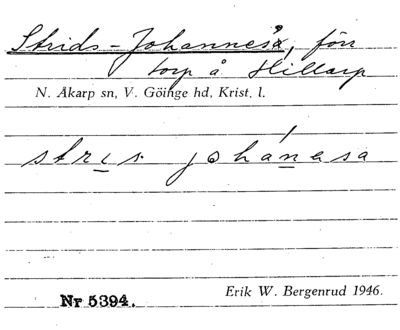 Strids-Johannesa, förr
torp å Hillarp
N. Åkarp sn, V. Göinge hd, Krist. l.
stris johánesa
Nr 5394.
Erik W. Bergenrud 1946.